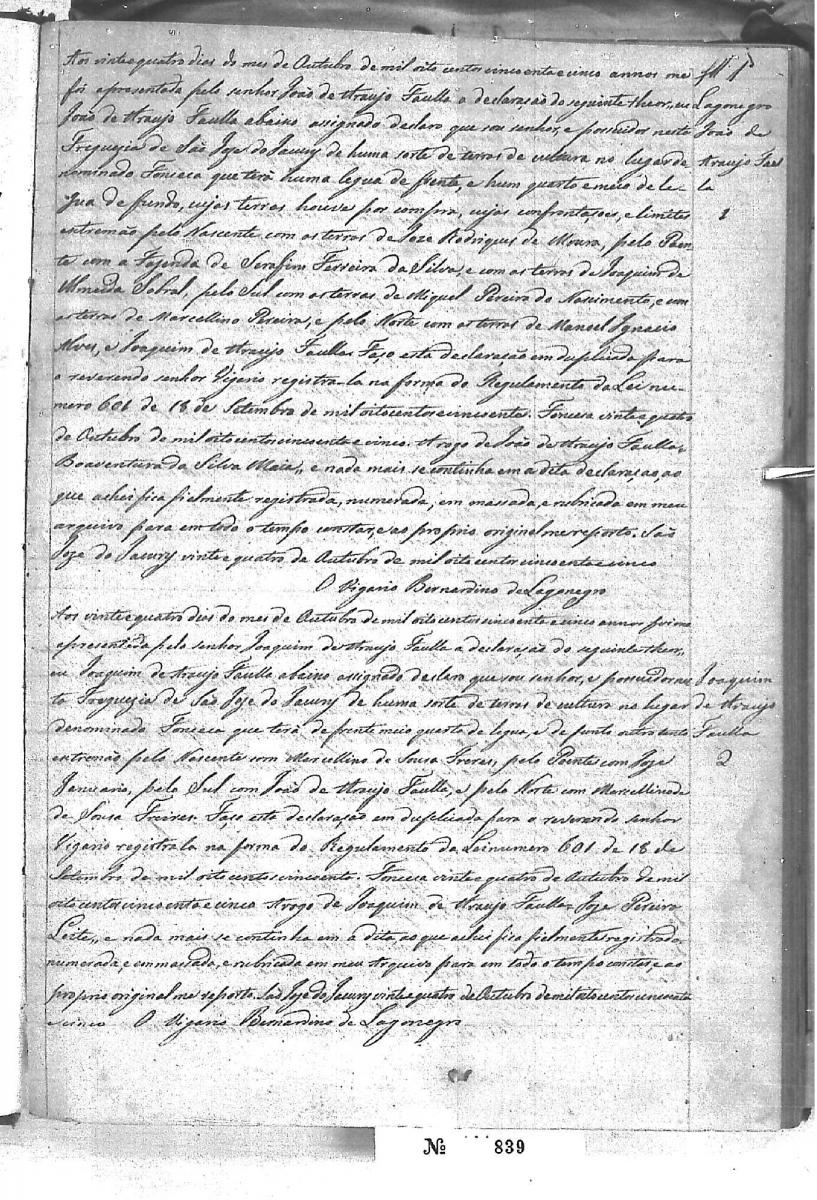 Aos vinte e quatro dias do mes de Outubro de mil oito centos cincoenta e cinco annos me
foi apresentada pelo senhor João de Araujo Faulla a declaração do seguinte theor, eu
João de Araujo Faulla abaixo assignado declaro que sou senhor, e possuidor nesta
Freguezia de São Joze do Jacury de huma sorte de terras de cultura no lugar de
nominado Fonceca que terá huma legua de frente, e hum quarto e meio de le-
gua de fundo, cujas terras houve por compra, cujas confrontasoes, e limites
extremão pelo Nascente com as terras de Joze Rodrigues de Moura, pelo Poen-
te com a Fazenda de Serafim Ferreira da Silva, e com as terras de Joaquim de
Almeida Sobral, pelo Sul com as terras de Miguel Pereira do Nascimento, e com
as terras de Marcellino Pereira, e pelo Norte com as terras de Manoel Ignacio
Alves, e Joaquim de Araujo Faulla. Faço esta declaração em duplicada para
o reverendo senhor Vigario registra-la na forma do Regulamento da Lei nu-
mero 601 de 18 de Setembro de mil oito centos e cincoenta. Fonceca vinte e quatro
de Outubro de mil oito centos cincoenta e cinco. Arogo de João de Araujo Faulla,
Boaventura da Silva Maia,, e nada mais se continha em a dita declaração, ao
que achei fica fielmente registrada, numerada, emmassada, e rubricada em meu
arquivo para em todo o tempo constar, e ao proprio original me reporto. São
Joze do Jacury vinte e quatro de Outubro de mil oito centos cincoenta e cinco
O Vigario Bernardino de Lagonegro
Aos vinte e quatro dias do mes de Outubro de mil oito centos cincoenta e cinco annos foi me
apresentada pelo senhor Joaquim de Araujo Faulla a declaração do seguinte theor,
eu Joaquim de Araujo Faulla abaixo assignado declaro que sou senhor, e possuidor nes
ta Freguezia de São Joze do Jacury de huma sorte de terras de cultura no lugar
denominado Fonceca que terá de frente meio quarto de legua, e de fundo outro tanto
extremão pelo Nascente com Marcellino de Sousa Freres, pelo Poente com Joze
Januario, pelo Sul com João de Araujo Faulla, e pelo Norte com Marcellino de
de Sousa Freires. Faço esta declaração em duplicada para o reverendo senhor
Vigario registrala na forma do Regulamento da Lei numero 601 de 18 de
Setembro de mil oito centos cincoenta. Fonceca vinte e quatro de Outubro de mil
oito centos cincoenta e cinco Arogo de Joaquim de Araujo Faulla Joze Pereira
Leite,, e nada mais se continha em a dita, ao que achei fica fielmente registrada
numerada, e emmassada, e rubricada em meu Arquivo para em todo o tempo constar, e ao
proprio original me reporto. São Joze do Jacury vinte e quatro de Outubro de mil oito centos cincoenta
e cinco O Vigario Bernardino de Lagonegro
Lagonegro
João de
Araujo Faul
la
1
Joaquim
de Araujo
Faulla
2
Nº 839